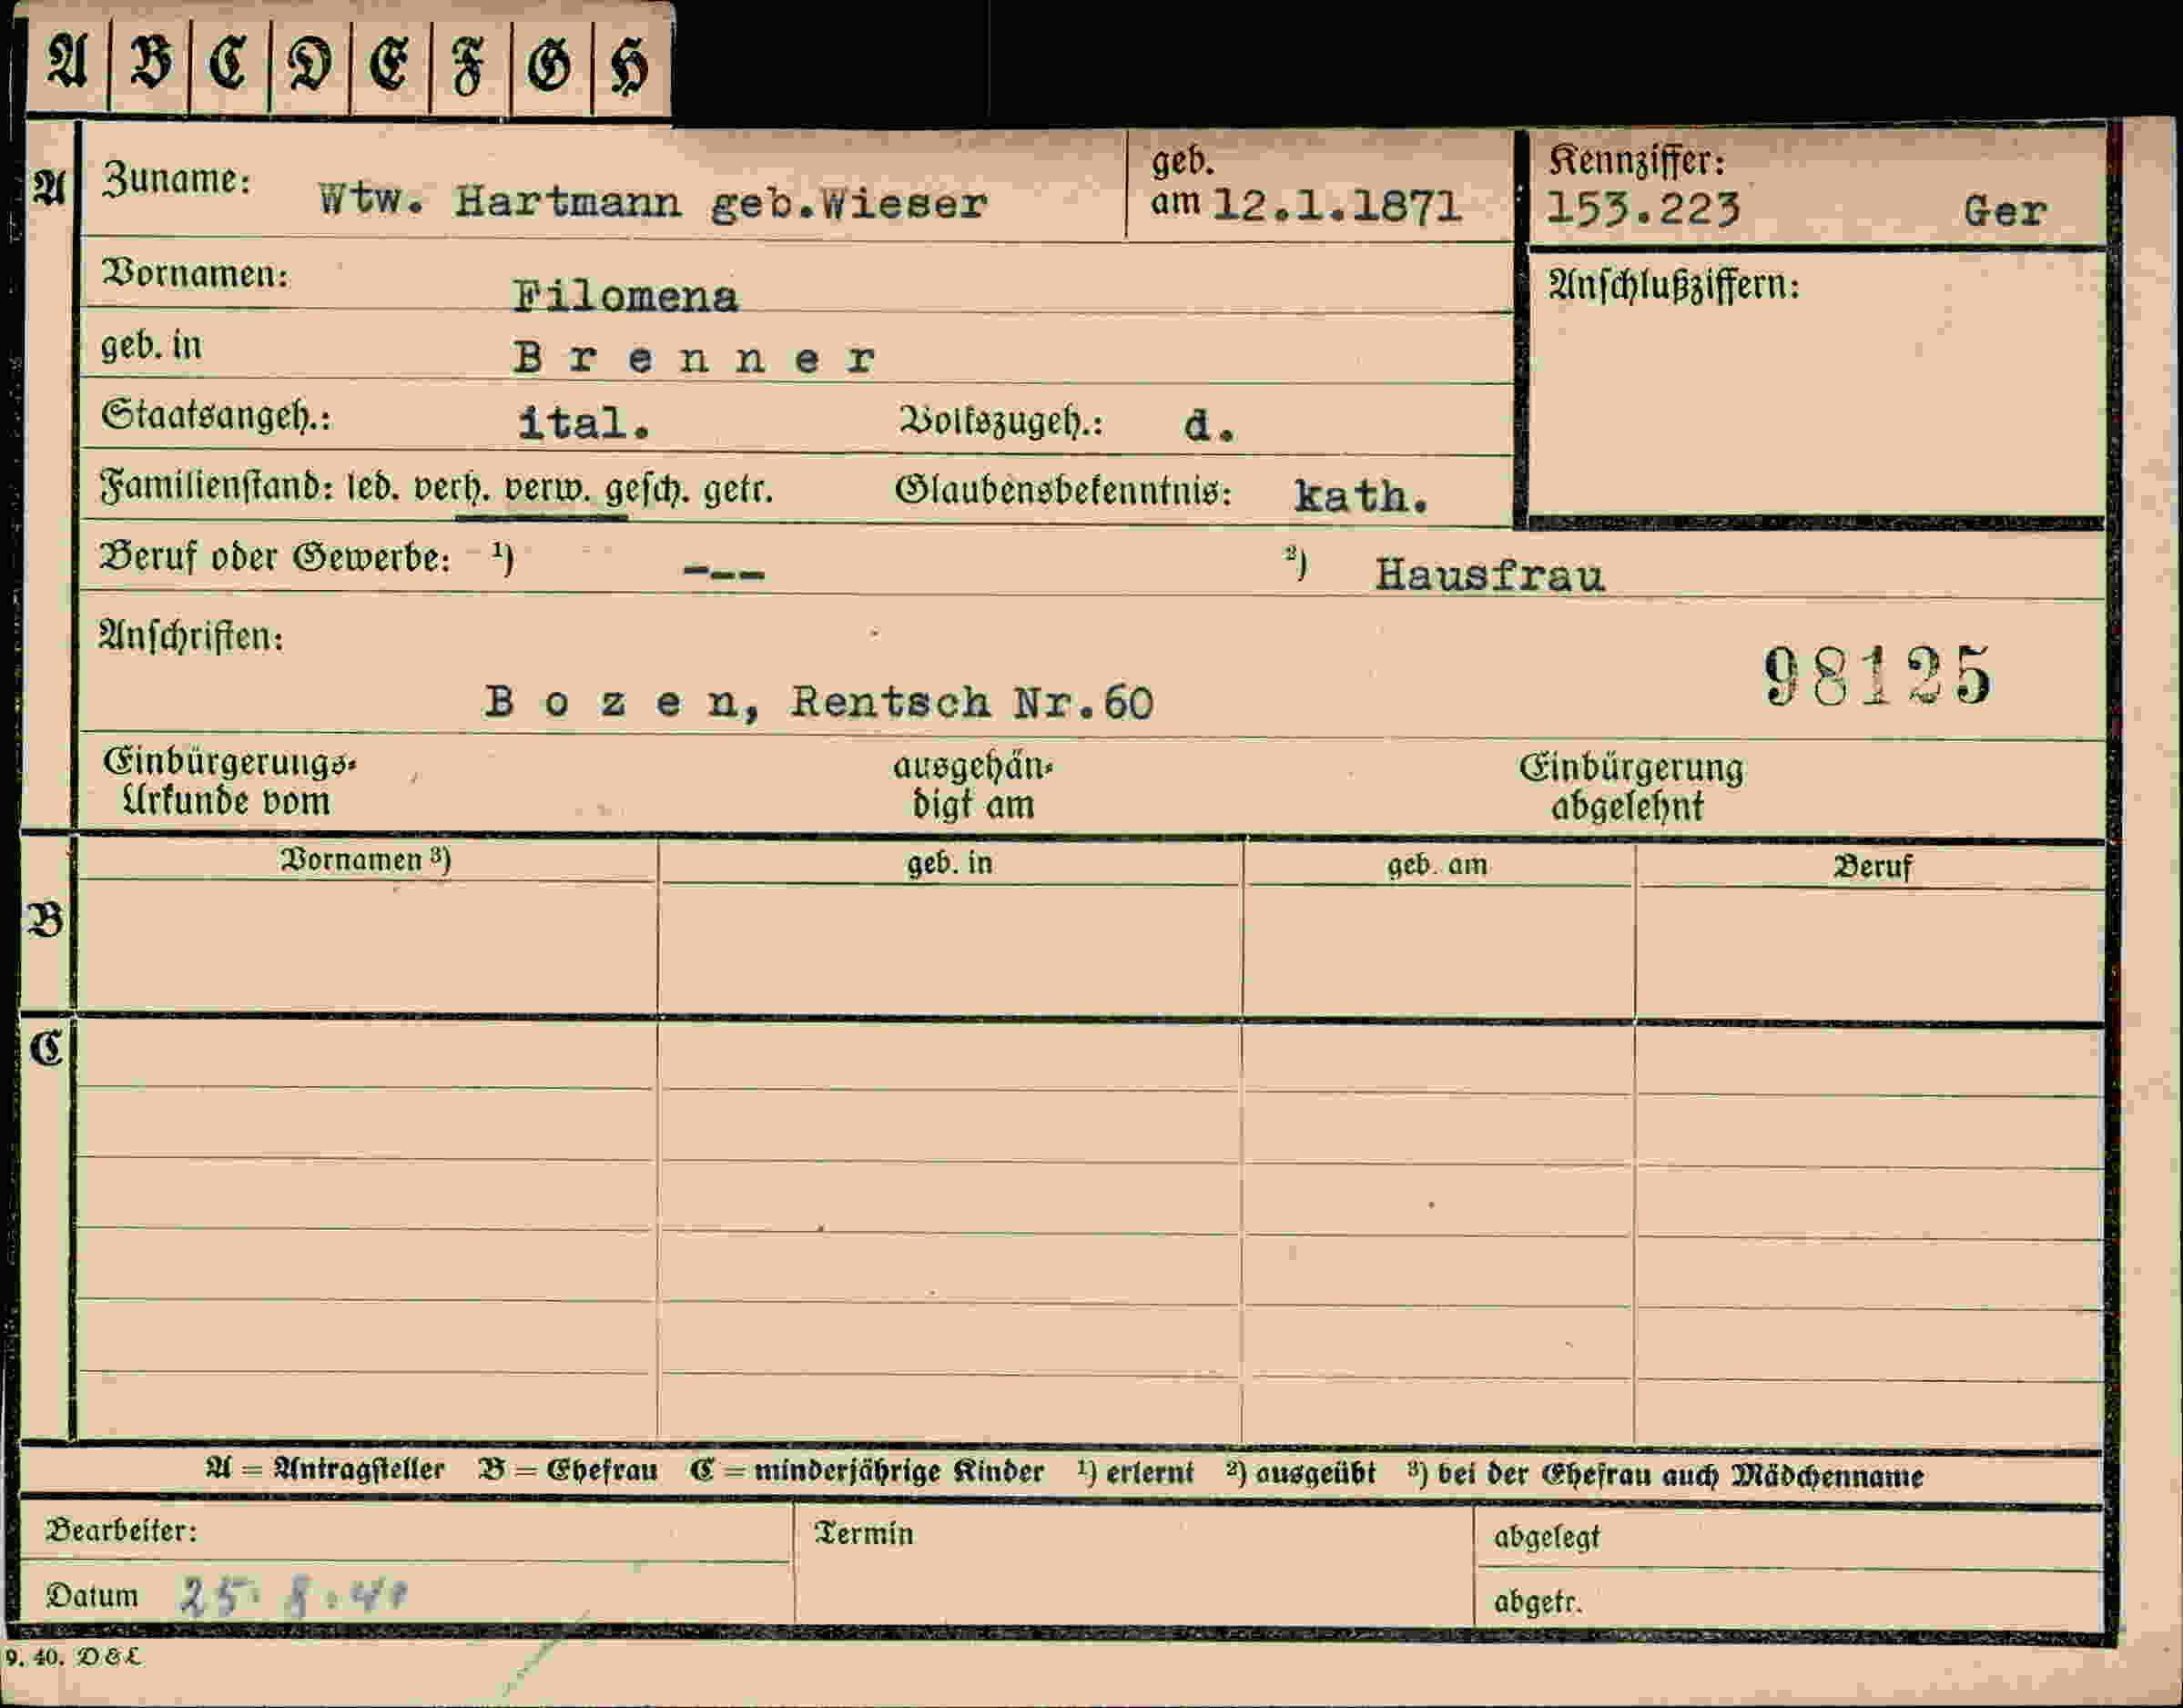 A B C D E F G H
A Zuname: Wtw. Hartmann geb.Wieser geb. am 12.1.1871 Kennziffer: 153.223 Ger
Vornamen: Filomena Anschlußziffern:
geb. in B r e n n e r
Staatsangeh.: ital. Volkszugeh.: d.
Familienstand: led. verh. verw. gesch. getr. Glaubensbekenntnis: kath.
Beruf oder Gewerbe: ¹) --- ²) Hausfrau
Anschriften: 98125
B o z e n, Rentsch Nr.60
Einbürgerungs- ausgehän- Einbürgerung
Urkunde vom digt am abgelehnt
Vornamen ³) geb. in geb. am Beruf
B
C
A = Antragsteller B = Ehefrau C = minderjährige Kinder ¹) erlernt ²) ausgeübt ³) bei der Ehefrau auch Mädchenname
Bearbeiter: Termin abgelegt
Datum 25. 8. abgetr.
9. 40. D & L